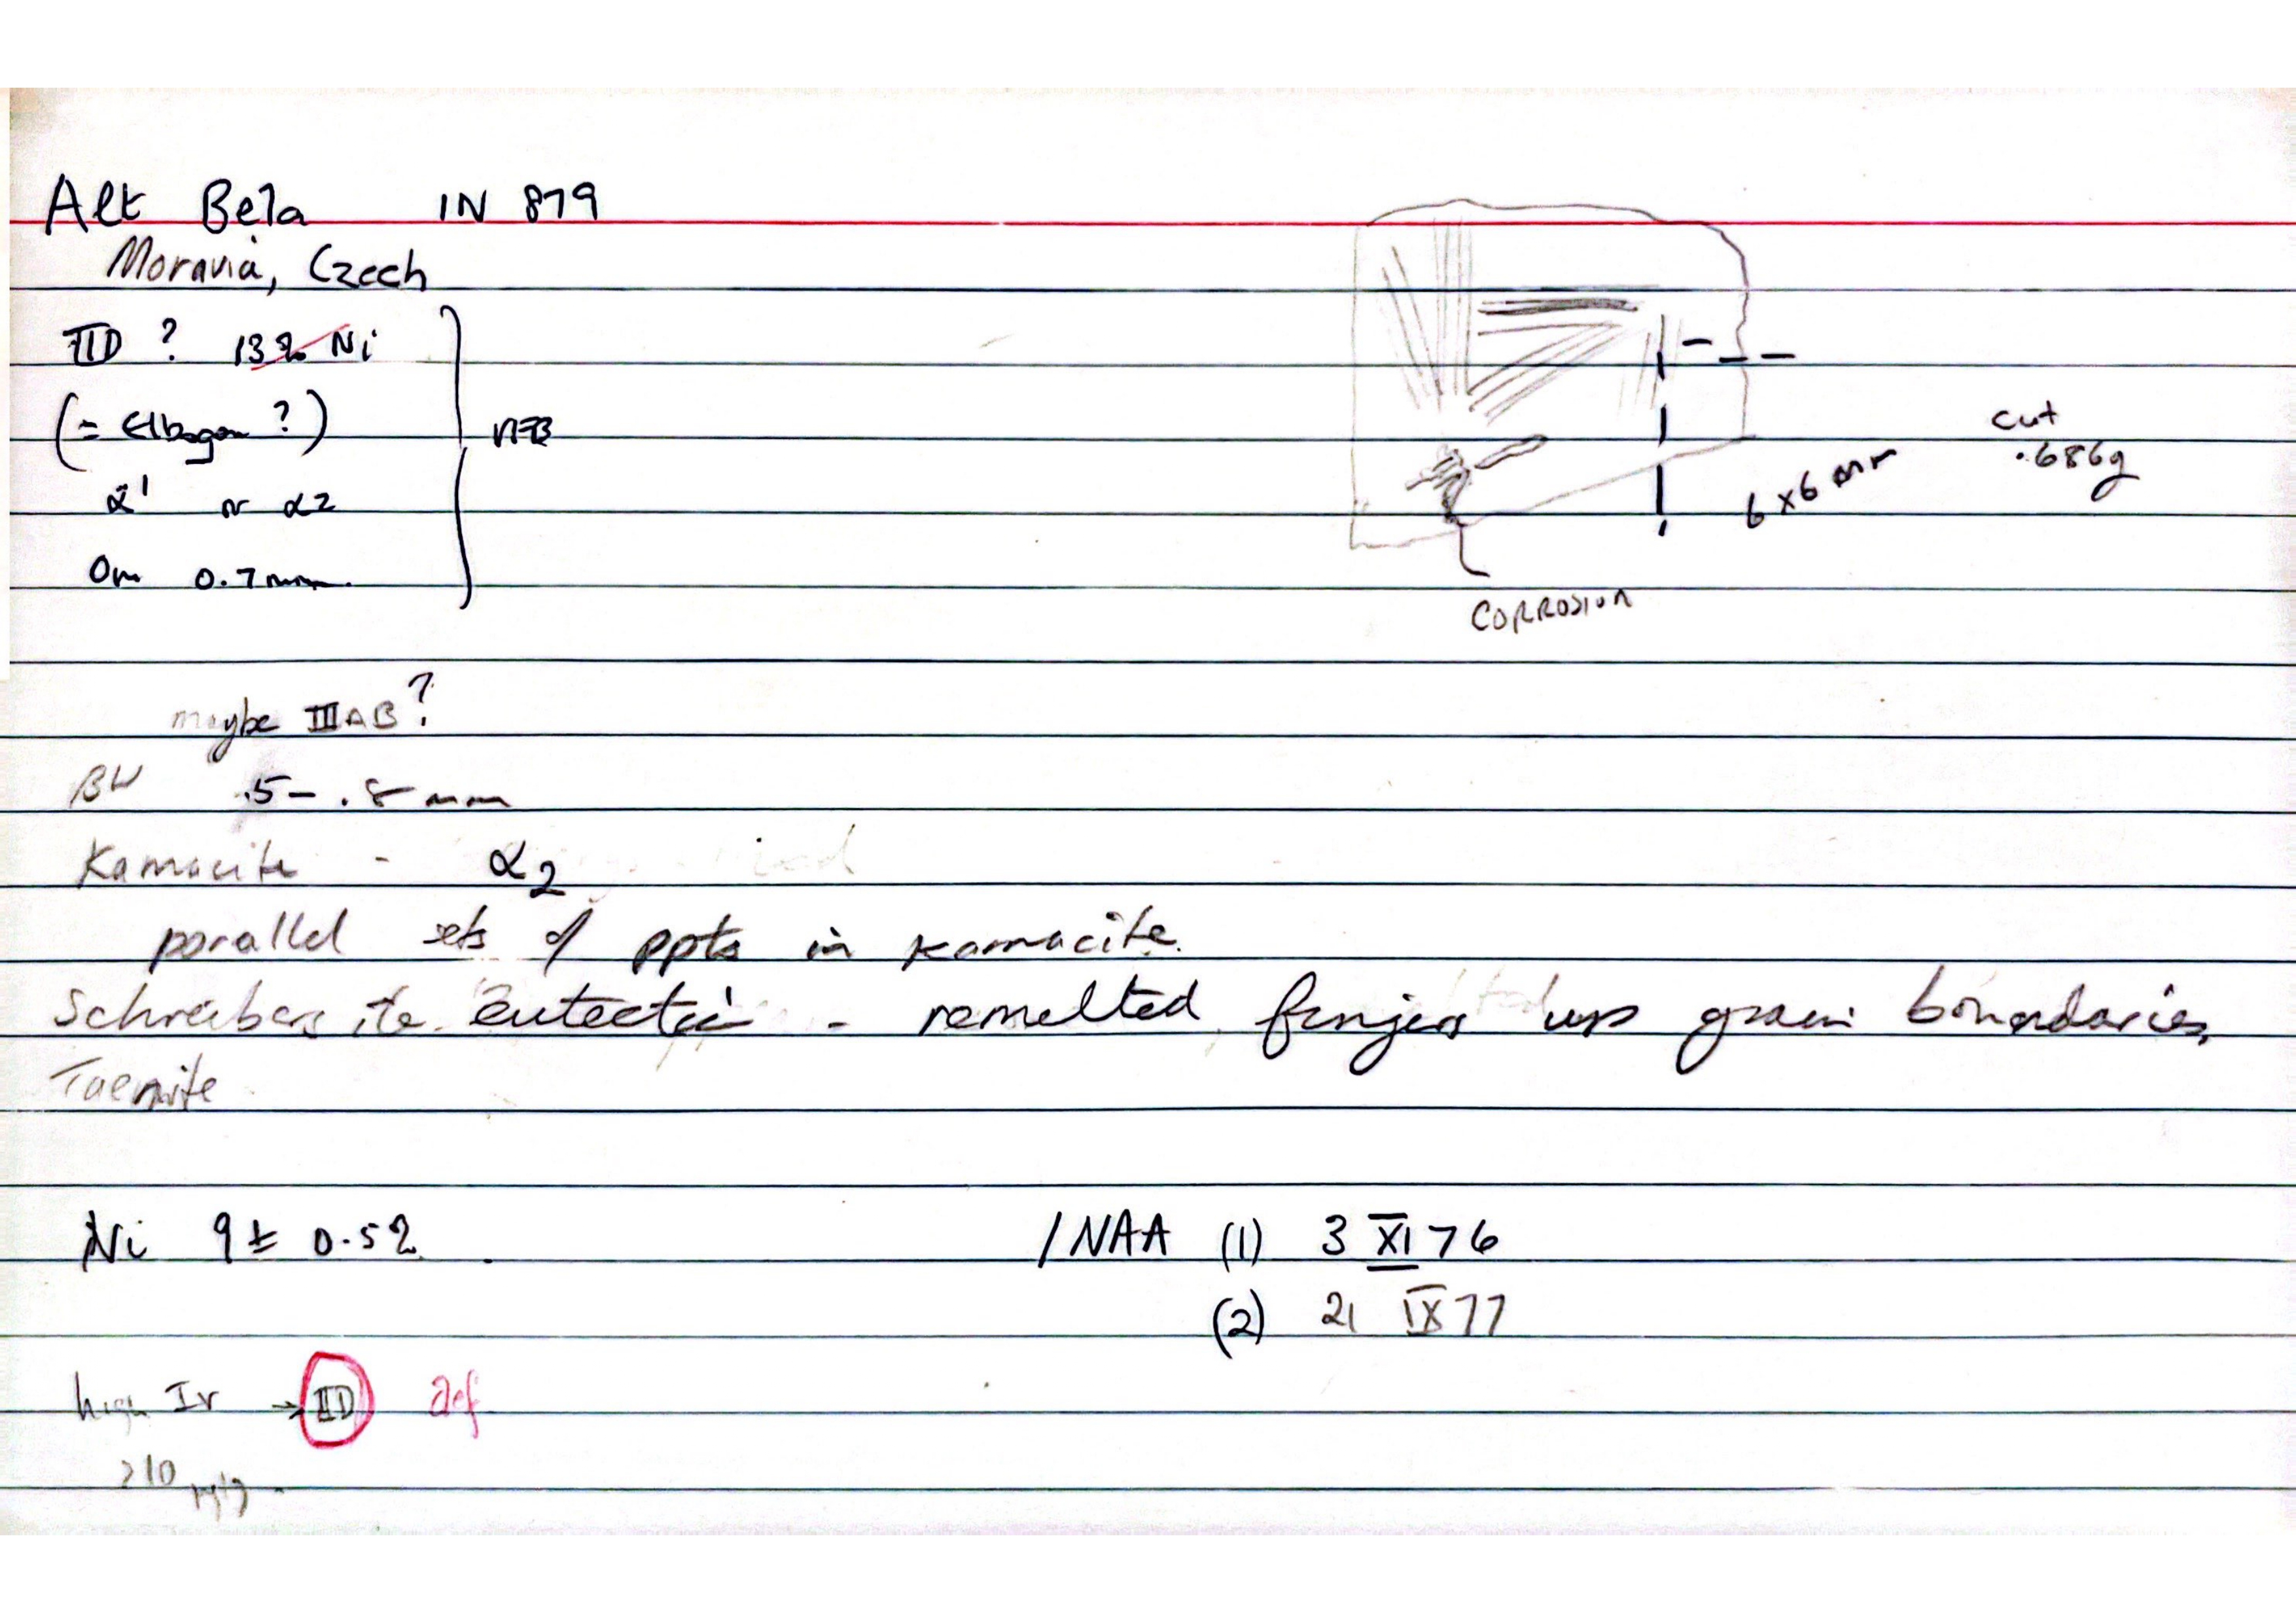 Alt Bela IN 879
Moravia, Czech
IID ? 13% Ni
(= Elbogen ?)
α' or α2
Om 0.7mm.
VFB
cut
.686g
6 x 6 mm
CORROSION
maybe IIIAB?
BW .5 - .8 mm
Kamacite - α2
parallel sets of ppts in kamacite.
Schreibersite eutectic - remelted, fingers up grain boundaries,
Taenite
Ni 9 ± 0.5%
INAA (1) 3 XI 76
(2) 21 IX 77
high Ir → IID def
>10 μg/g.